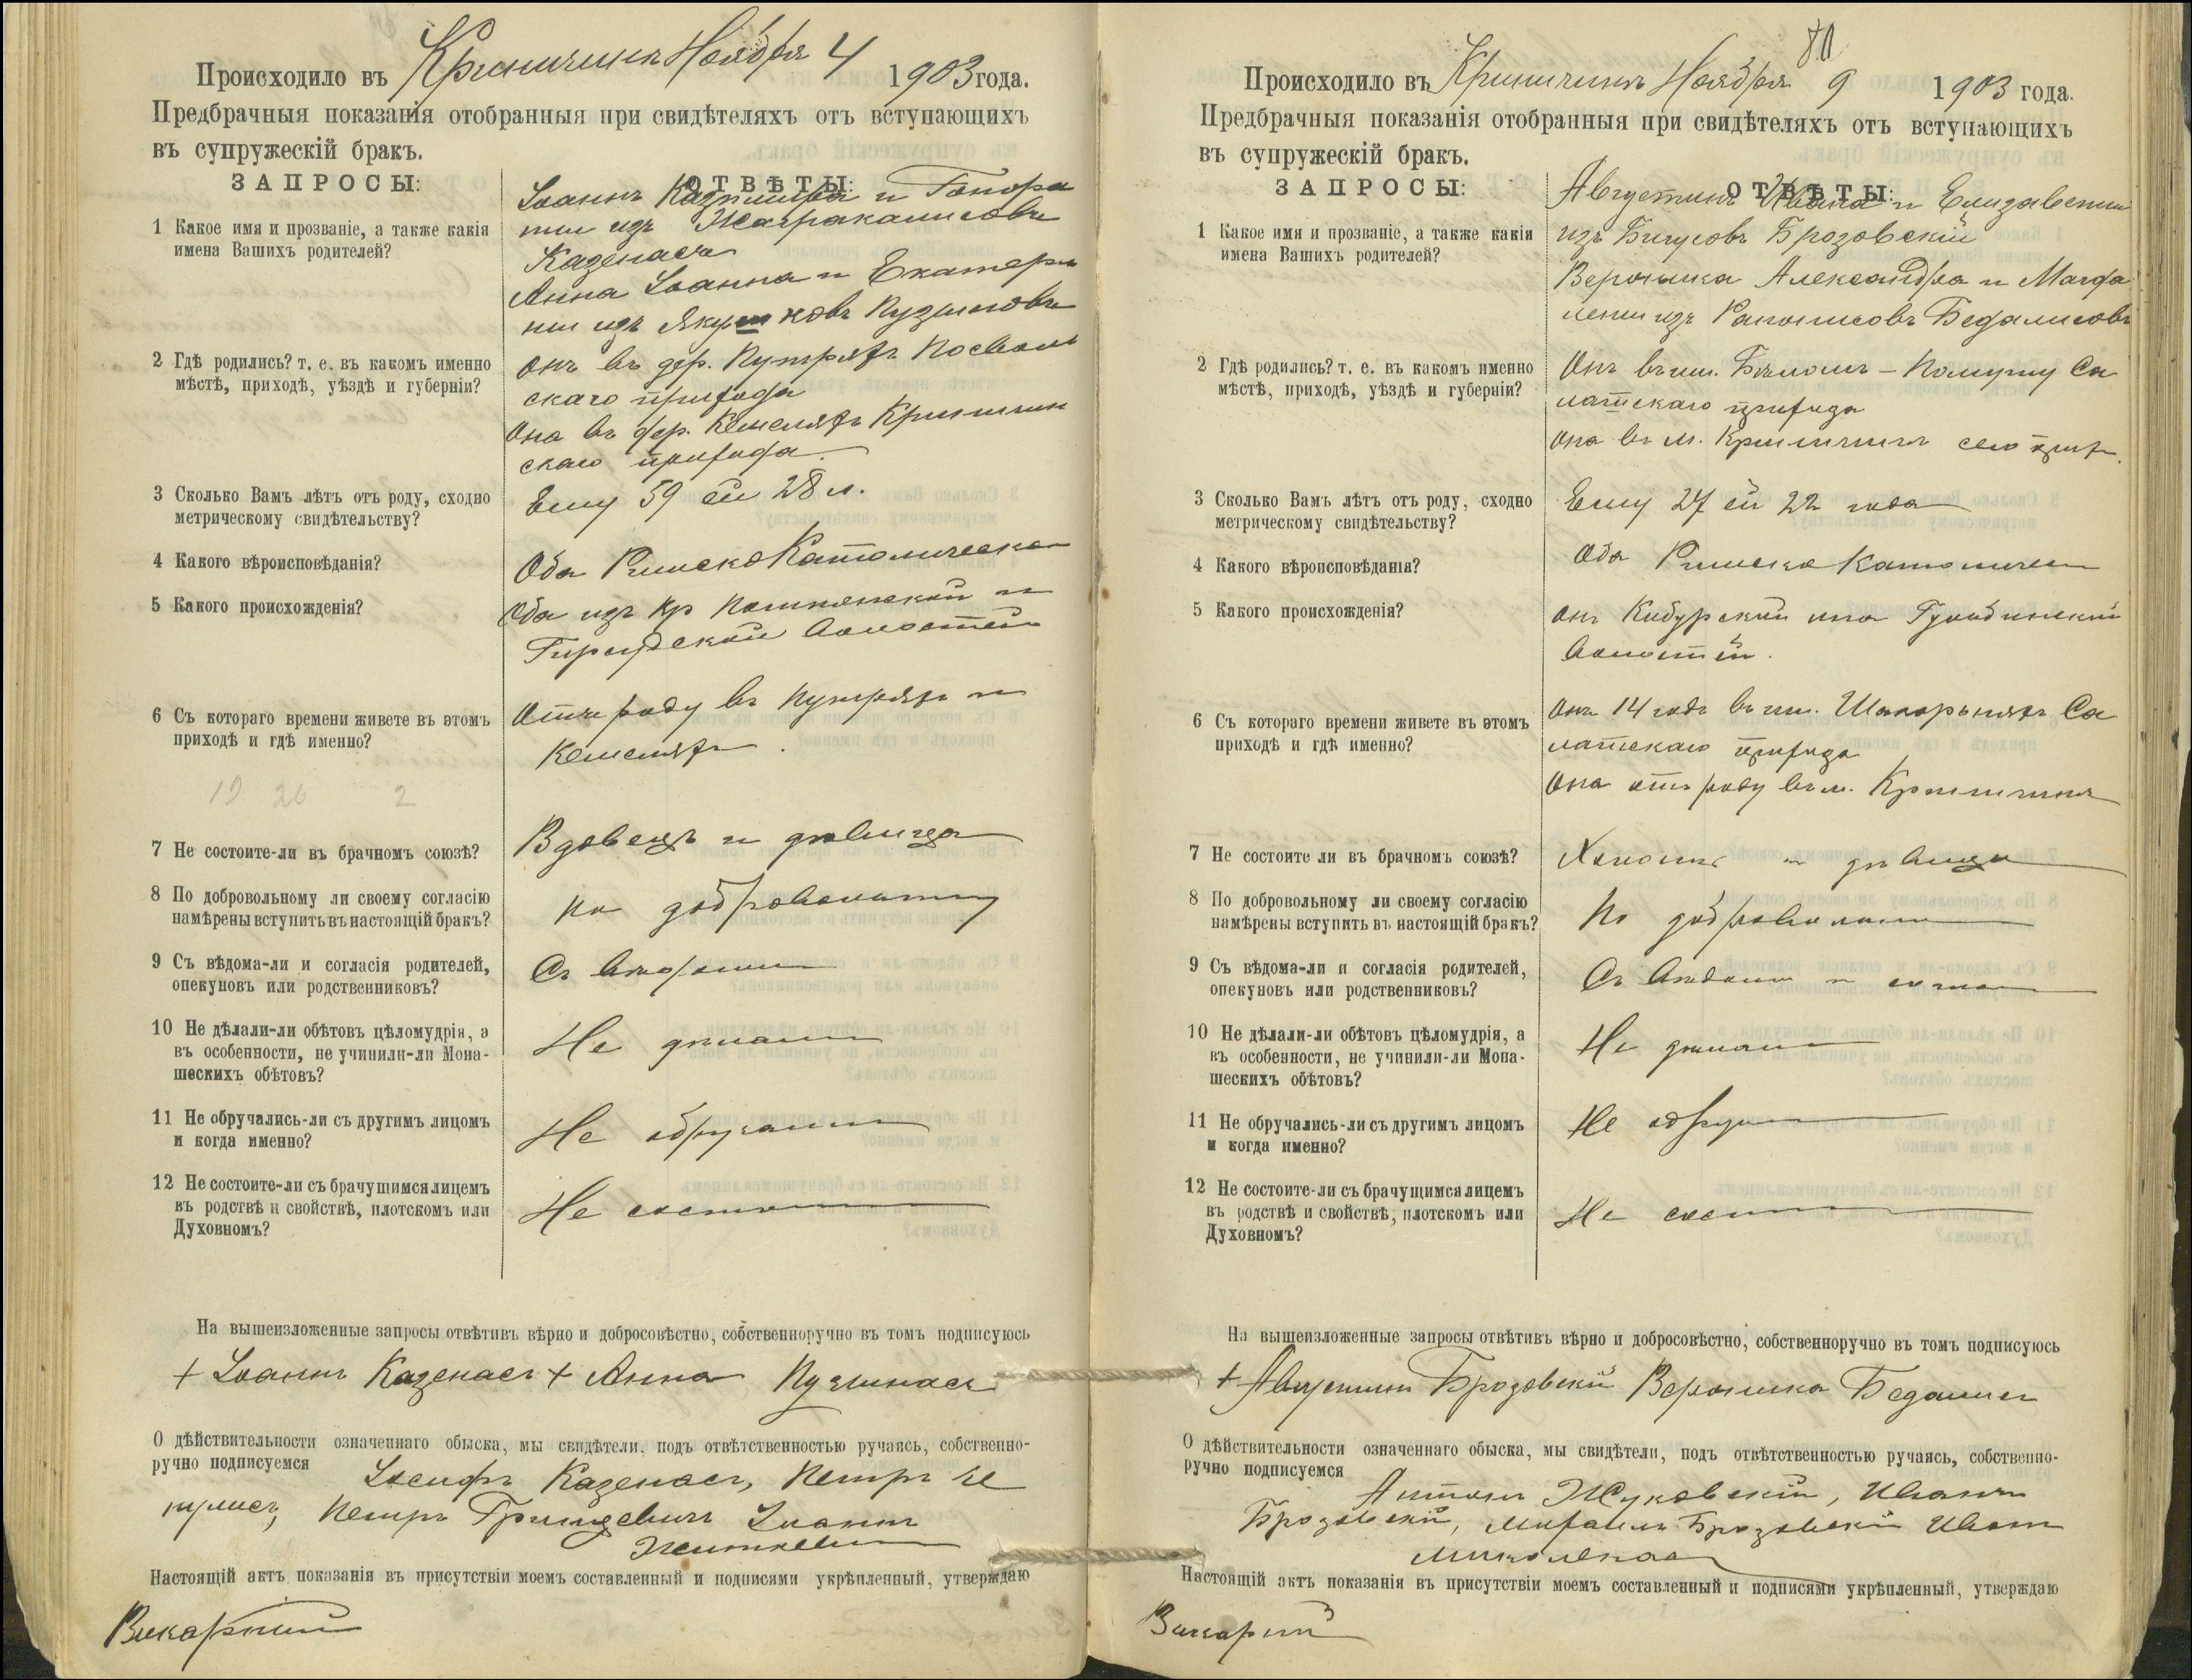 Происходило въ Криничинъ Ноября 4 1903 года.
Предбрачныя показанія отобранныя при свидѣтеляхъ отъ вступающихъ
въ супружескій бракъ.
ЗАПРОСЫ: ОТВѢТЫ:
1 Какое имя и прозваніе, а также какія
имена Вашихъ родителей?
Іоаннъ Казимира и
изъ
Казенасъ
Анна Іоанна и Екатери
ны изъ
2 Гдѣ родились? т. е. въ какомъ именно
мѣстѣ, приходѣ, уѣздѣ и губерніи?
Онъ въ дер. Путряхъ Посволь
скаго прихода
Она въ дер. Кемеляхъ Криничин
скаго прихода
3 Сколько Вамъ лѣтъ отъ роду, сходно
метрическому свидѣтельству?
Ему 59 ей 28 л.
4 Какого вѣроисповѣданія?
Оба РимскоКатолическа
5 Какого происхожденія?
Оба изъ кр и
Гирсудской Волостей
6 Съ котораго времени живете въ этомъ
приходѣ и гдѣ именно?
Отъ роду въ Путряхъ и
Кемеляхъ
19 26 2
7 Не состоите-ли въ брачномъ союзѣ?
Вдовецъ и дѣвица
8 По добровольному ли своему согласію
намѣрены вступить въ настоящій бракъ?
По добровольному
9 Съ вѣдома-ли и согласія родителей,
опекуновъ или родственниковъ?
Съ
10 Не дѣлали-ли обѣтовъ цѣломудрія, а
въ особенности, не учинили-ли Мона-
шескихъ обѣтовъ?
Не дѣлали
11 Не обручались-ли съ другимъ лицомъ
и когда именно?
Не обручали
12 Не состоите-ли съ брачущимся лицемъ
въ родствѣ и свойствѣ, плотскомъ или
Духовномъ?
Не состо
На вышеизложенные запросы отвѣтивъ вѣрно и добросовѣстно, собственноручно въ томъ подписуюсь
+ Іоаннъ Казенасъ + Анна Пузинасъ
О дѣйствительности означеннаго обыска, мы свидѣтели, подъ отвѣтственностью ручаясь, собственно-
ручно подписуемся Іосифъ Казенасъ, Петръ
Петръ Грицевичъ Іоаннъ
Настоящій актъ показанія въ присутствіи моемъ составленный и подписями укрѣпленный, утверждаю
Викарный
80
Происходило въ Криничинъ Ноября 9 1903 года.
Предбрачныя показанія отобранныя при свидѣтеляхъ отъ вступающихъ
въ супружескій бракъ.
ЗАПРОСЫ: ОТВѢТЫ:
1 Какое имя и прозваніе, а также какія
имена Вашихъ родителей?
Августинъ Ивана и Елизаветы
изъ Бигусовъ Брозовскій
Вероника Александра и Магда
лены изъ Бедалисовъ
2 Гдѣ родились? т. е. въ какомъ именно
мѣстѣ, приходѣ, уѣздѣ и губерніи?
Онъ въ им. Са
латскаго прихода
Она въ м. Криничинъ сего прих.
3 Сколько Вамъ лѣтъ отъ роду, сходно
метрическому свидѣтельству?
Ему 27 ей 22 года
4 Какого вѣроисповѣданія?
Оба Римско Католичес
5 Какого происхожденія?
Онъ Кибурской она
Волостей.
6 Съ котораго времени живете въ этомъ
приходѣ и гдѣ именно?
Онъ 14 годъ въ им. Са
латскаго прихода
Она отъ роду въ м. Криничинъ
7 Не состоите ли въ брачномъ союзѣ?
Холостъ и дѣвица
8 По добровольному ли своему согласію
намѣрены вступить въ настоящій бракъ?
По доброволь
9 Съ вѣдома-ли и согласія родителей,
опекуновъ или родственниковъ?
Съ вѣдома и соглас
10 Не дѣлали-ли обѣтовъ цѣломудрія, а
въ особенности, не учинили-ли Мона-
шескихъ обѣтовъ?
Не дѣлали
11 Не обручались-ли съ другимъ лицомъ
и когда именно?
Не обруч
12 Не состоите-ли съ брачущимся лицемъ
въ родствѣ и свойствѣ, плотскомъ или
Духовномъ?
Не сост
На вышеизложенные запросы отвѣтивъ вѣрно и добросовѣстно, собственноручно въ томъ подписуюсь
+ Августинъ Брозовскій Вероника Бедалисъ
О дѣйствительности означеннаго обыска, мы свидѣтели, подъ отвѣтственностью ручаясь, собственно-
ручно подписуемся Антонъ Жуковскій, Иванъ
Брозовскій, Михаилъ Брозовскій Иванъ
Настоящій актъ показанія въ присутствіи моемъ составленный и подписями укрѣпленный, утверждаю
Викарный